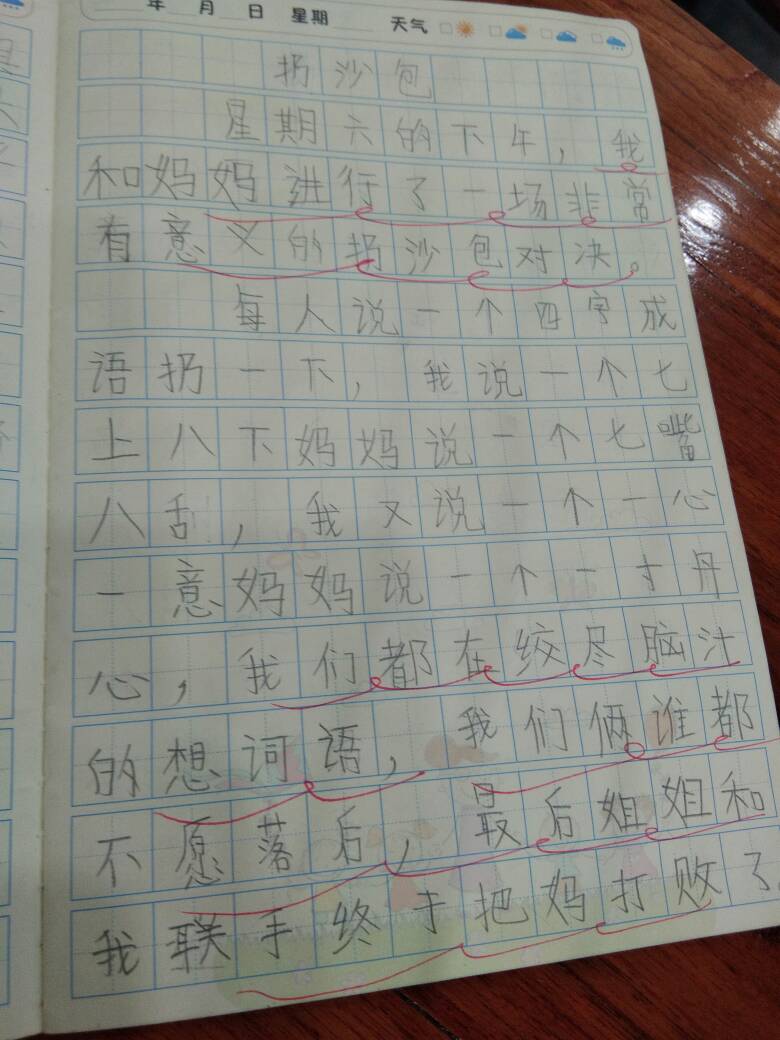 年 月 日 星期 天气
扔沙包
星期六的下午，我
和妈妈进行了一场非常
有意义的扔沙包对决。
每人说一个四字成
语扔一下，我说一个七
上八下妈妈说一个七嘴
八舌，我又说一个一心
一意妈妈说一个一寸丹
心，我们都在绞尽脑汁
的想词语，我们俩谁都
不愿落后，最后姐姐和
我联手终于把妈打败了